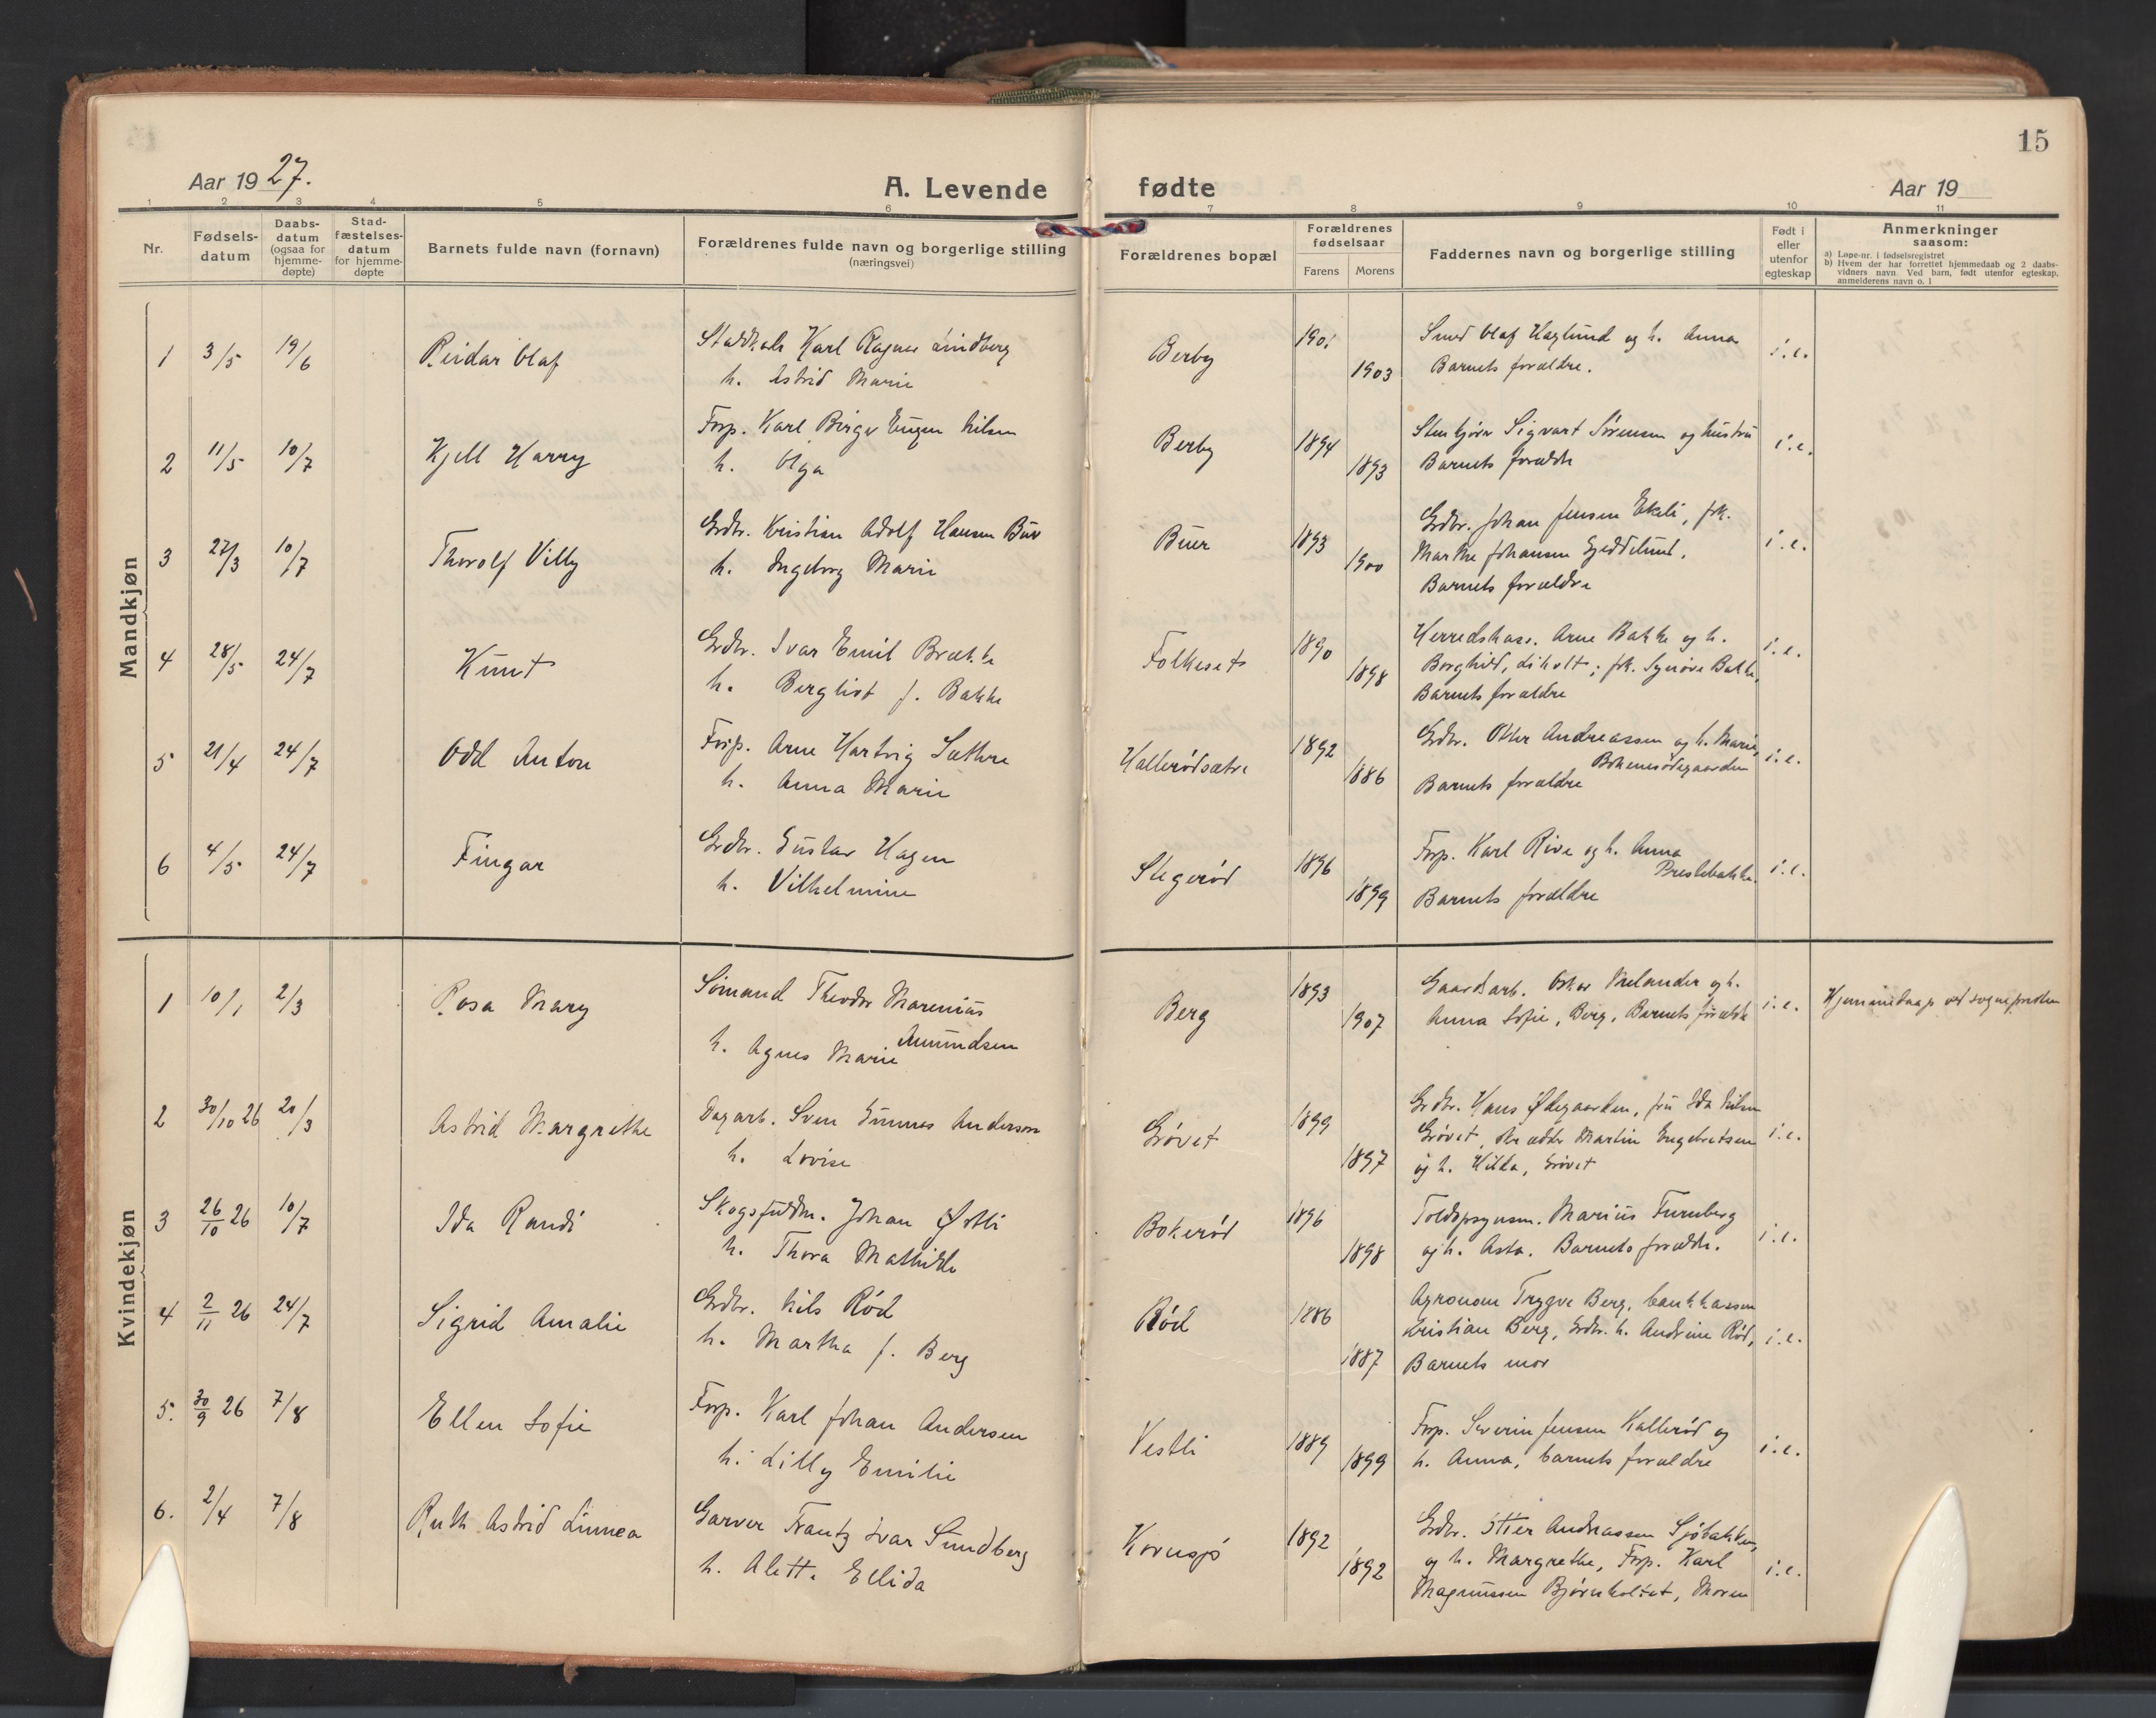 15
Aar 1927.
A. Levende fødte
Aar 19
1 2 3 4 5 6 7 8 9 10 11
Nr.
Fødsels-
datum
Daabs-
datum
(ogsaa for
hjemme-
døpte)
Stad-
fæstelses-
datum
for hjemme-
døpte
Barnets fulde navn (fornavn)
Forældrenes fulde navn og borgerlige stilling
(næringsvei)
Forældrenes bopæl
Forældrenes
fødselsaar
Farens Morens
Faddernes navn og borgerlige stilling
Født i
eller
utenfor
egteskap
Anmerkninger
saasom:
a) Løpe-nr. i fødselsregistret
b) Hvem der har forrettet hjemmedaab og 2 daabs-
vidners navn. Ved barn, født utenfor egteskap,
anmelderens navn o. l
Mandkjøn
1 3/5 19/6 Reidar Olaf
Karl Ragnar Lindberg
h. Astrid Marie
Berby 1901 1903
Smed Olaf Haglund og h. Anna
Barnets forældre.
i.e.
2 11/5 10/7 Kjell Harry
Forp. Karl Birger Eugen Nilsen
h. Olga
Berby 1894 1893
Stenhjører Sigvart Sørensen og hustru
Barnets forældre
i.e.
3 27/3 10/7 Thorolf Villy
Grdbr. Kristian Adolf Hansen Buer
h. Ingeborg Marie
Buer 1893 1900
Grdbr. Johan Jensen Ekeli, frk.
Marthe Johansen Gjeddelund.
Barnets forældre
i.e.
4 28/5 24/7 Knut
Grdbr. Ivar Emil Brække
h. Bergliot f. Bakke
Folkeset 1890 1898
Herredskass. Arne Bakke og h.
Borghild, Liholt; frk. Synøve Bakke,
Barnets forældre
i.e.
5 21/4 24/7 Odd Anton
Forp. Arne Hartvig Sæthre
h. Anna Marie
Hallerødsætre 1892 1886
Grdbr. Otter Andreassen og h. Marie,
Bokerødegaarden
Barnets forældre
i.e.
6 4/5 24/7 Fingar
Grdbr. Gustav Hagen
h. Vilhelmine
Stegerød 1896 1899
Forp. Karl Rive og h. Anna
Prestebakke.
Barnets forældre
i.e.
Kvindekjøn
1 10/1 2/3 Rosa Mary
Sømand Theodor Marenius
Amundsen
h. Agnes Marie
Berg 1893 1907
Gaardsarb. Oskar Melander og h.
Anna Sofie, Berg, Barnets forældre
i.e.
Hjemmedaap ved sognepresten
2 30/10 26 20/3 Astrid Margrethe
Dagarb. Sven Gunnar Anderson
h. Lovise
Grøvet 1899 1897
Grdbr. Hans Ødegaarden, fru Ida Nilsen
Grøvet, Skrædder Martin Engebretsen
og h. Hilda, Grøvet
i.e.
3 26/10 26 10/7 Ida Randi
Skogsfuldm. Johan Østli
h. Thora Mathilde
Bokerød 1896 1898
Toldopsynsm. Marius Furuberg
og h. Asta. Barnets forældre.
i.e.
4 2/11 26 24/7 Sigrid Amalie
Grdbr. Nils Rød
h. Martha f. Berg
Rød 1886 1887
Agronom Trygve Berg, bankkasserer
Kristian Berg, Grdbr. h. Andrine Rød,
Barnets mor
i.e.
5. 30/9 26 7/8 Ellen Sofie
Forp. Karl Johan Andersen
h. Lilly Emilie
Vestli 1889 1899
Forp. Severin Jensen Kallerød og
h. Anna, barnets forældre
i.e.
6. 2/4 7/8 Ruth Astrid Linnea
Garver Frantz Ivar Sundberg
h. Alette Elida
Kornsjø 1892 1892
Grdbr. Otter Andreassen Sjøbakken,
og h. Margrethe, Forp. Karl
Magnussen Bjørnholtet, Moren
i.e.